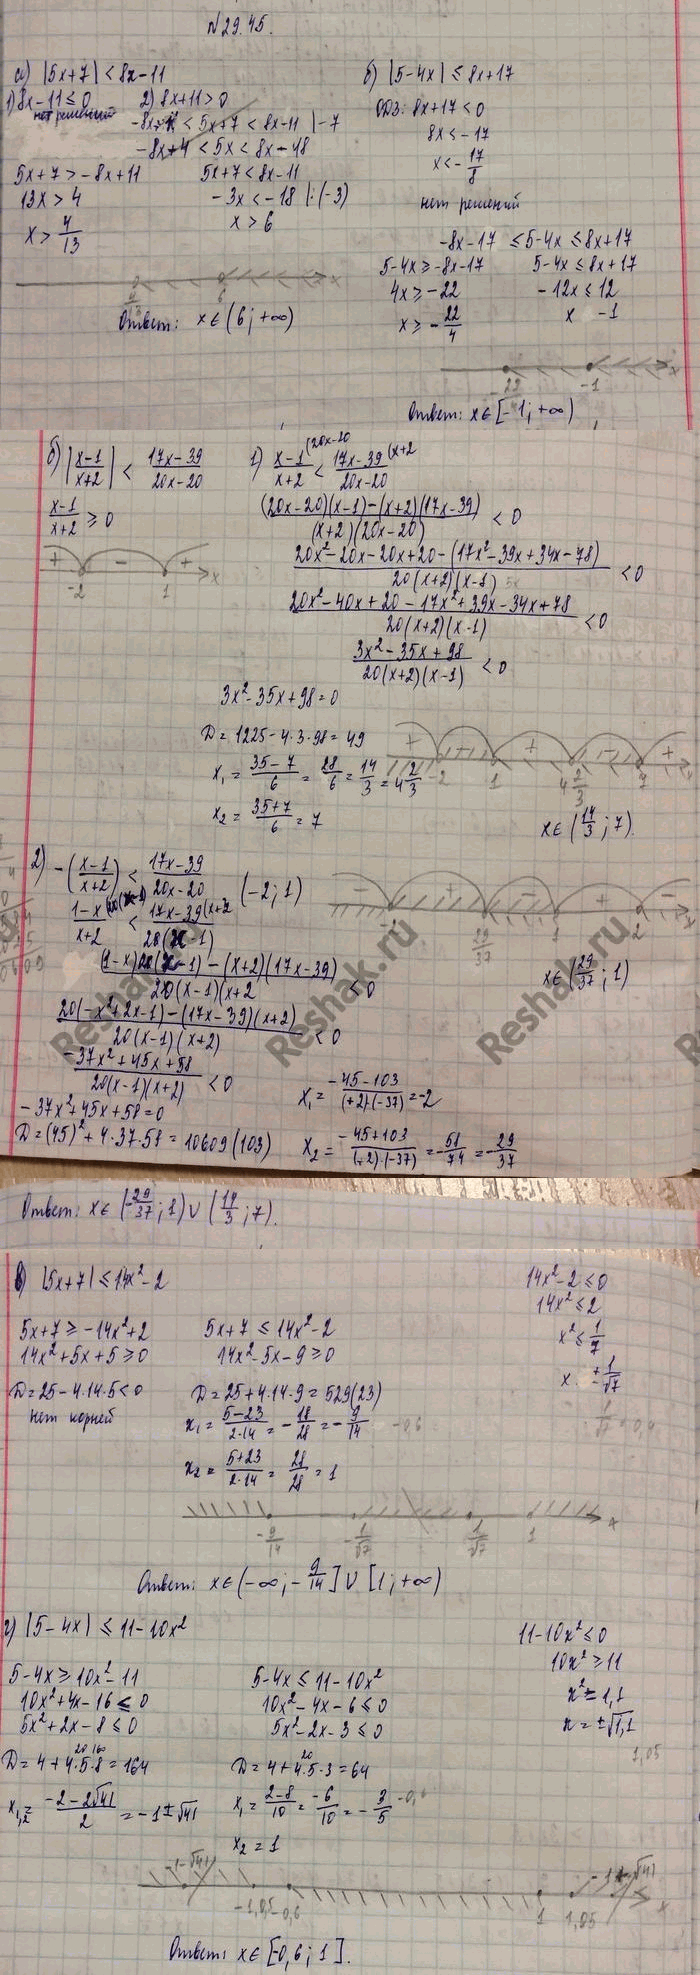 N 29.45.
а) |5x+7| < 8x-11
1) 8x-11 ≤ 0
нет решений
2) 8x+11 > 0
< 5x+7 < 8x-11 |-7
-8x+4 < 5x < 8x-18
5x+7 > -8x+11
13x > 4
x > 4/13
5x+7 < 8x-11
-3x < -18 |:(-3)
x > 6
6 x
Ответ: x∈(6; +∞)
б) |5-4x| ≤ 8x+17
ОДЗ: 8x+17 < 0
8x < -17
x < -17/8
нет решений
-8x-17 ≤ 5-4x ≤ 8x+17
5-4x ≥ -8x-17
4x ≥ -22
x ≥ -22/4
5-4x ≤ 8x+17
-12x ≤ 12
x -1
-1 x
Ответ: x∈[-1; +∞)
б) |(x-1)/(x+2)| < (17x-39)/(20x-20)
(x-1)/(x+2) ≥ 0
+ - +
-2 1 x
1) (x-1)/(x+2) (20x-20 < (17x-39)/(20x-20) (x+2
((20x-20)(x-1)-(x+2)(17x-39))/((x+2)(20x-20)) < 0
(20x²-20x-20x+20-(17x²-39x+34x-78))/(20(x+2)(x-1)) < 0
(20x²-40x+20-17x²+39x-34x+78)/(20(x+2)(x-1)) < 0
(3x²-35x+98)/(20(x+2)(x-1)) < 0
3x²-35x+98=0
D = 1225-4·3·98 = 49
x₁ = (35-7)/6 = 28/6 = 14/3 = 4 2/3
x₂ = (35+7)/6 = 7
+ - + - +
-2 1 4 2/3 7 x
x∈(14/3; 7)
2) -((x-1)/(x+2)) < (17x-39)/(20x-20) (-2; 1)
(1-x)/(x+2) < (17x-39)/(20(x-1)) (x+2
((1-x)20(x-1)-(x+2)(17x-39))/(20(x-1)(x+2) < 0
(20(-x²+2x-1)-(17x-39)(x+2))/(20(x-1)(x+2)) < 0
(-37x²+45x+58)/(20(x-1)(x+2)) < 0
-37x²+45x+58=0
D = (45)²+4·37·58 = 10609 (103)
x₁ = (-45-103)/((+2)·(-37)) = -2
x₂ = (-45+103)/((+2)·(-37)) = -58/74 = -29/37
- + - + -
29/37 1 2 x
x∈(29/37; 1)
Ответ: x∈(-29/37; 1)∪(14/3; 7).
в) |5x+7| ≤ 14x²-2
5x+7 ≥ -14x²+2
14x²+5x+5 ≥ 0
D = 25-4·14·5 < 0
нет корней
5x+7 ≤ 14x²-2
14x²-5x-9 ≥ 0
D = 25+4·14·9 = 529 (23)
x₁ = (5-23)/(2·14) = -18/28 = -9/14 -0,6
x₂ = (5+23)/(2·14) = 28/28 = 1
14x²-2 ≤ 0
14x² ≤ 2
x² ≤ 1/7
x ± 1/√7
-9/14 -1/√7 1/√7 1 x
Ответ: x∈(-∞; -9/14]∪[1; +∞)
г) |5-4x| ≤ 11-10x²
5-4x ≥ 10x²-11
10x²+4x-16 ≤ 0
5x²+2x-8 ≤ 0
D = 4+4·5·8 = 164
x₁,₂ = (-2-2√41)/2 = -1±√41
5-4x ≤ 11-10x²
10x²-4x-6 ≤ 0
5x²-2x-3 ≤ 0
D = 4+4·5·3 = 64
x₁ = (2-8)/10 = -6/10 = -3/5
x₂ = 1
11-10x² ≤ 0
10x² ≥ 11
x² = 1,1
x = ±√1,1
1,05
-1-√41 -1,05 -0,6 1 1,05 x
Ответ: x∈[-0,6; 1].
Reshak.ru
Reshak.ru
Reshak.ru